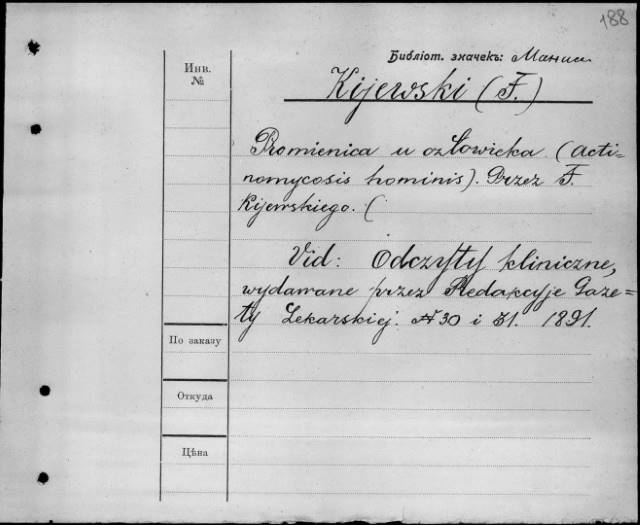 188
Библіот. значекъ:
Инв.
№
Kijewski (F.)
Promienica u człowieka (acti-
nomycosis hominis). Przez F.
Kijewskiego. (
Vid: Odczyty kliniczne,
wydawane przez Redakcyje Gaze-
ty Lekarskiej. № 30 i 31. 1891.
По заказу
Откуда
Цѣна